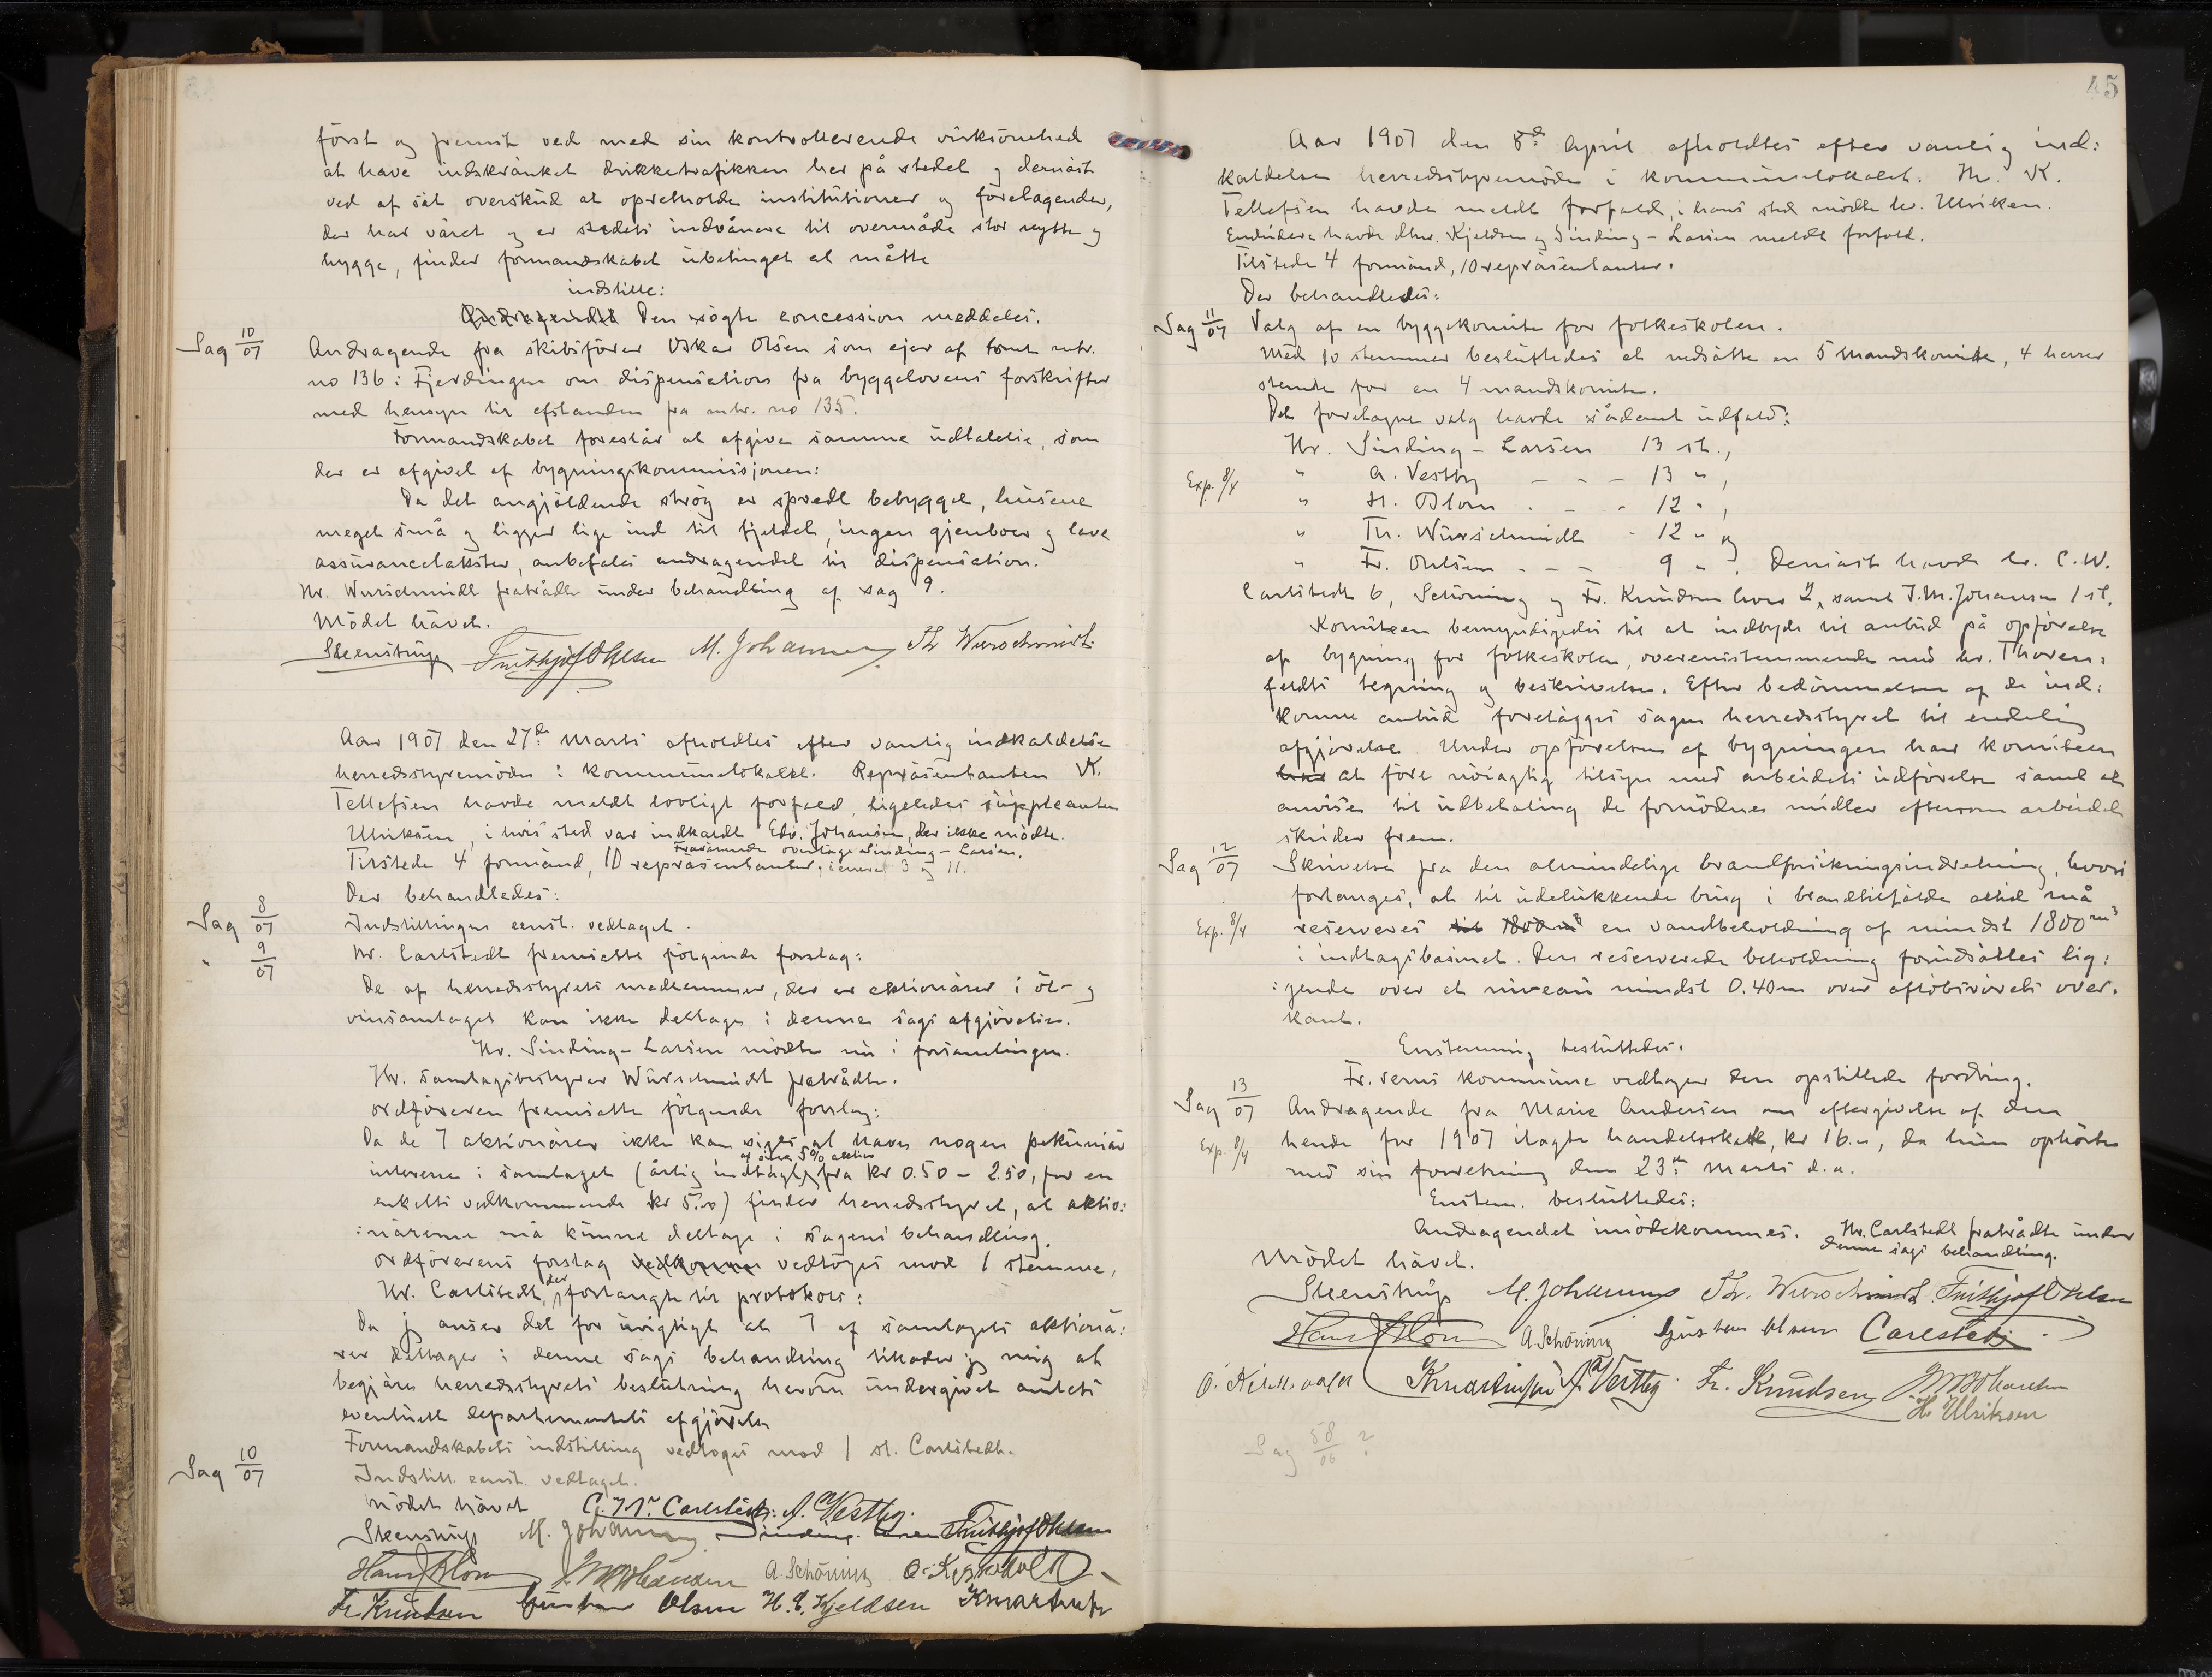 först og fremst ved med sin kontrollerende virksomhed
at have indskränket drikketrafikken her på stedet og dernäst
ved af sät overskud at opretholde institutioner og foretagender,
der har väret og er stedets indvånere til overmåde stor nytte og
hygge, finder formandskabet ubetinget at måtte
indstille:
Den søgte concession meddeles.
Sag 10/07 Andragende fra skibsförer Oskar Olsen som ejer af tomt mtr.
no 136 i Fjerdingen om dispensation fra byggelovens forskrifter
med hensyn til afstanden fra mtr. no 135.
Formandskabet foreslår at afgive samme udtalelse, som
der er afgivet af bygningskommissjonen:
Da det angjäldende strög er spredt bebygget, husene
meget små og ligger lige ind til fjeldet, ingen gjenboer og lave
assurancetakster, anbefales andragendet til dispensation.
Hr. Wurschmidt fratrådte under behandling af sag 9.
Mödet hävet.
Steenstrup Frithjof Ohlsen M. Johannesen Th Wurschmidt
Aar 1907 den 27de Marts afholdtes efter vanlig indkaldelse
herredsstyremöde i kommunelokalet. Repräsentanten K.
Tellefsen havde meldt lovligt forfald, ligeledes suppleanten
Ulriksen, i hvis sted var indkaldt Edv. Johansen, der ikke mödte.
Fraværende overläge Sinding-Larsen.
Tilstede 4 formänd, 10 repräsentanter, senere 3 og 11.
Der behandledes:
Sag 8/07 Indstillingen eenst. vedtaget.
" 9/07 Hr. Carlstedt fremsatte fölgende forslag:
De af herredsstyrets medlemmer, der er aktionärer i öl- og
vinsamlaget kan ikke deltage i denne sags afgjörelse.
Hr. Sinding-Larsen mödte nu i forsamlingen.
Hr. samlagsbestyrer Wurschmidt fratrådte.
Ordföreren fremsatte fölgende forslag:
Da de 7 aktionärer ikke kan siges at have nogen pekuniär
af sina 5% aktier
interesse i samlaget (årlig indtägt fra kr 0.50 - 2.50, for en
enkelts vedkommende kr 5.00) finder herredsstyret, at aktio:
:närerne må kunne deltage i sagens behandling.
Ordförerens forslag vedtoges mod 1 stemme,
Hr. Carlstedt, der forlangte til protokols:
Da jeg anser det for urigtigt at 7 af samlagets aktionä:
rer deltager i denne sags behandling tillader jeg mig at
begjäre herredsstyrets beslutning herom undergivet amtets
eventuelt departementets afgjörelse
Formandskabets indstilling vedtoges mod 1 st. Carlstedt.
Sag 10/07 Indstill. eenst. vedtaget.
Mödet hävet C. W. Carlstedt. A. Vestby.
Steenstrup M. Johannesen Sinding-Larsen Frithjof Ohlsen
Hans Blom A. Schöning
Fr. Knudsen Gustav Olsen H. E. Kjeldsen
45
Aar 1907 den 8de April afholdtes efter vanlig ind:
kaldelse herredsstyremöde i kommunelokalet. Hr. K.
Tellefsen havde meldt forfald, i hans sted mödte hr. Ulriksen.
Endvidere havde dhrr. Kjeldsen og Sinding-Larsen meldt forfald.
Tilstede 4 formänd, 10 repräsentanter.
Der behandledes:
Sag 11/07 Valg af en byggekomite for folkeskolen.
Med 10 stemmer besluttedes at nedsätte en 5 mandskomite, 4 herrer
stemte for en 4 mandskomite.
Det foretagne valg havde sådant udfald:
Hr. Sinding-Larsen 13 st.,
Exp. 8/4 " A. Vestby - - - 13 " ,
" H. Blom - - - 12 " ,
" Th. Wurschmidt - 12 " og
" Fr. Ohlsen - - - 9 " . Dernäst havde hr. C. W.
Carlstedt 6, Schöning og Fr. Knudsen hver 2, samt J. M. Johansen 1 st.
Komiteen bemyndigedes til at indbyde til anbud på opförelse
af bygning for folkeskolen, overenstemmende med hr. Thoren:
feldts tegning og beskrivelse. Efter bedömmelsen af de ind:
komne anbud forelägges sagen herredsstyret til endelig
afgjörelse. Under opförelsen af bygningen har komiteen
at före nöiagtig tilsyn med arbeidets udförelse samt at
anvise til udbetaling de fornödne midler eftersom arbeidet
skrider frem.
Sag 12/07 Skrivelse fra den almindelige brandforsikringsindretning, hvori
forlanges, at til udelukkende brug i brandtilfälde altid må
Exp. 8/4 reserveres en vandbeholdning af mindst 1800 m3
i indtagsbasinet. Den reserverede beholdning forudsättes lig:
:gende over et niveau mindst 0.40m over aflöbsrörets over.
kant.
Enstemmig besluttedes:
Fr.verns kommune vedtager den opstillede fordring.
Sag 13/07 Andragende fra Marie Andersen om eftergivelse af den
Exp. 8/4 hende for 1907 ilagte handelsskatt, kr 16.", da hun ophörte
med sin forretning den 23de Marts d.a.
Enstem. besluttedes:
Andragendet imödekommes. Hr. Carlstedt fratrådte under
denne sags behandling.
Mödet hävet.
Steenstrup M. Johannesen Th. Wurschmidt Frithjof Ohlsen
Hans Blom A. Schöning Gustav Olsen Carlstedt
A. Vestby Fr. Knudsen
H. Ulriksen
Sag 58/06 ?